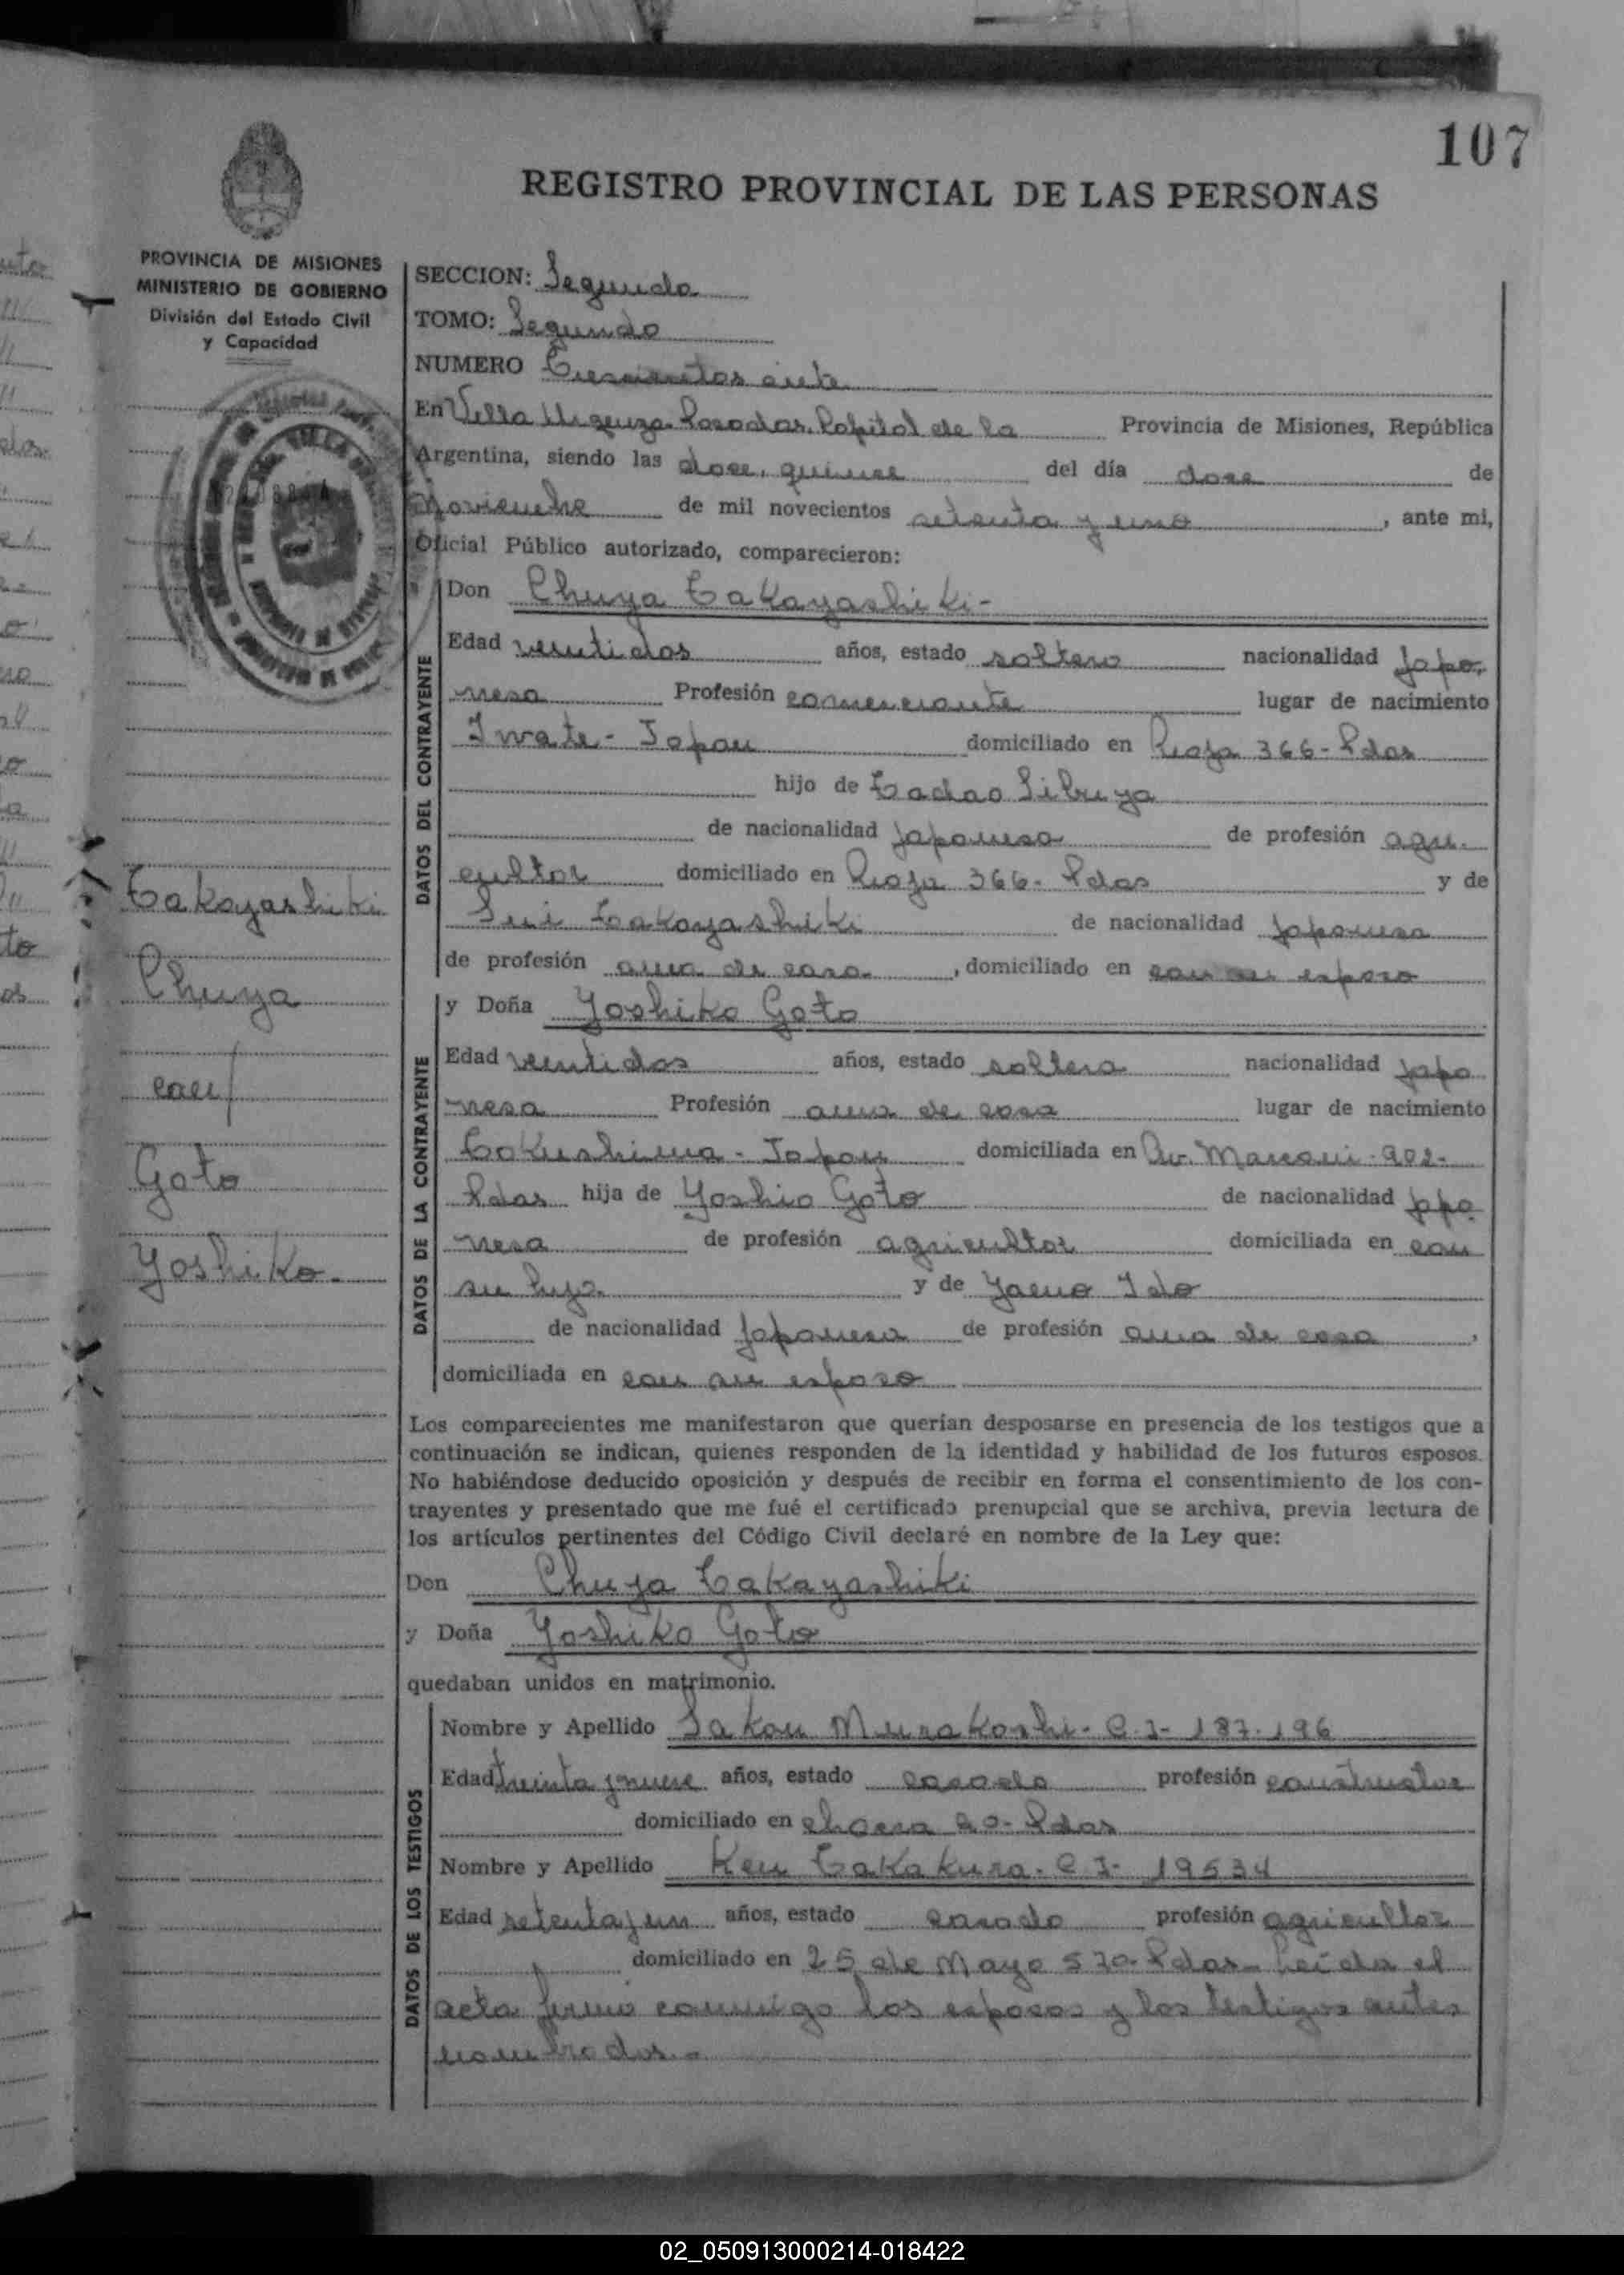 107
REGISTRO PROVINCIAL DE LAS PERSONAS
PROVINCIA DE MISIONES
MINISTERIO DE GOBIERNO
División del Estado Civil
y Capacidad
Takayashiki
Chuya
con/
Goto
Yoshiko.
SECCION: Segunda
TOMO: Segundo
NUMERO Trescientos siete
En Villa Urquiza. Posadas. Capital de la Provincia de Misiones, República
Argentina, siendo las doce, quince del día doce de
Noviembre de mil novecientos setenta y uno, ante mi,
Oficial Público autorizado, comparecieron:
DATOS DEL CONTRAYENTE
Don Chuya Takayashiki-
Edad ventidos años, estado soltero nacionalidad Japo,
nesa Profesión comerciante lugar de nacimiento
Iwate- Japon domiciliado en Rioja 366- Pdas
hijo de Tadao Sibuya
de nacionalidad Japonesa de profesión agri.
cultor domiciliado en Rioja 366- Pdas y de
Takayashiki de nacionalidad Japonesa
de profesión ama de casa, domiciliado en con su esposo
DATOS DE LA CONTRAYENTE
y Doña Yoshiko Goto
Edad ventidos años, estado soltera nacionalidad Japo
nesa Profesión ama de casa lugar de nacimiento
Tokushima - Japon domiciliada en Av. Marconi-902-
Pdas hija de Yoshio Goto de nacionalidad Japo
nesa de profesión agricultor domiciliada en con
su hija. y de Ido
de nacionalidad Japonesa de profesión ama de casa,
domiciliada en con su esposo
Los comparecientes me manifestaron que querían desposarse en presencia de los testigos que a
continuación se indican, quienes responden de la identidad y habilidad de los futuros esposos.
No habiéndose deducido oposición y después de recibir en forma el consentimiento de los con-
trayentes y presentado que me fué el certificado prenupcial que se archiva, previa lectura de
los artículos pertinentes del Código Civil declaré en nombre de la Ley que:
Don Chuya Takayashiki
y Doña Yoshiko Goto
quedaban unidos en matrimonio.
DATOS DE LOS TESTIGOS
Nombre y Apellido Sakou Murakoshi- C.I- 187.196
Edad treinta y nueve años, estado casado profesión constructor
domiciliado en Pdas
Nombre y Apellido Ken Takakura. C.I- 19534
Edad setenta y un años, estado casado profesión agricultor
domiciliado en 25 de Mayo 570- Pdas- Leída el
acta firmo conmigo los esposos y los testigos antes
nombrados.-
02_050913000214-018422